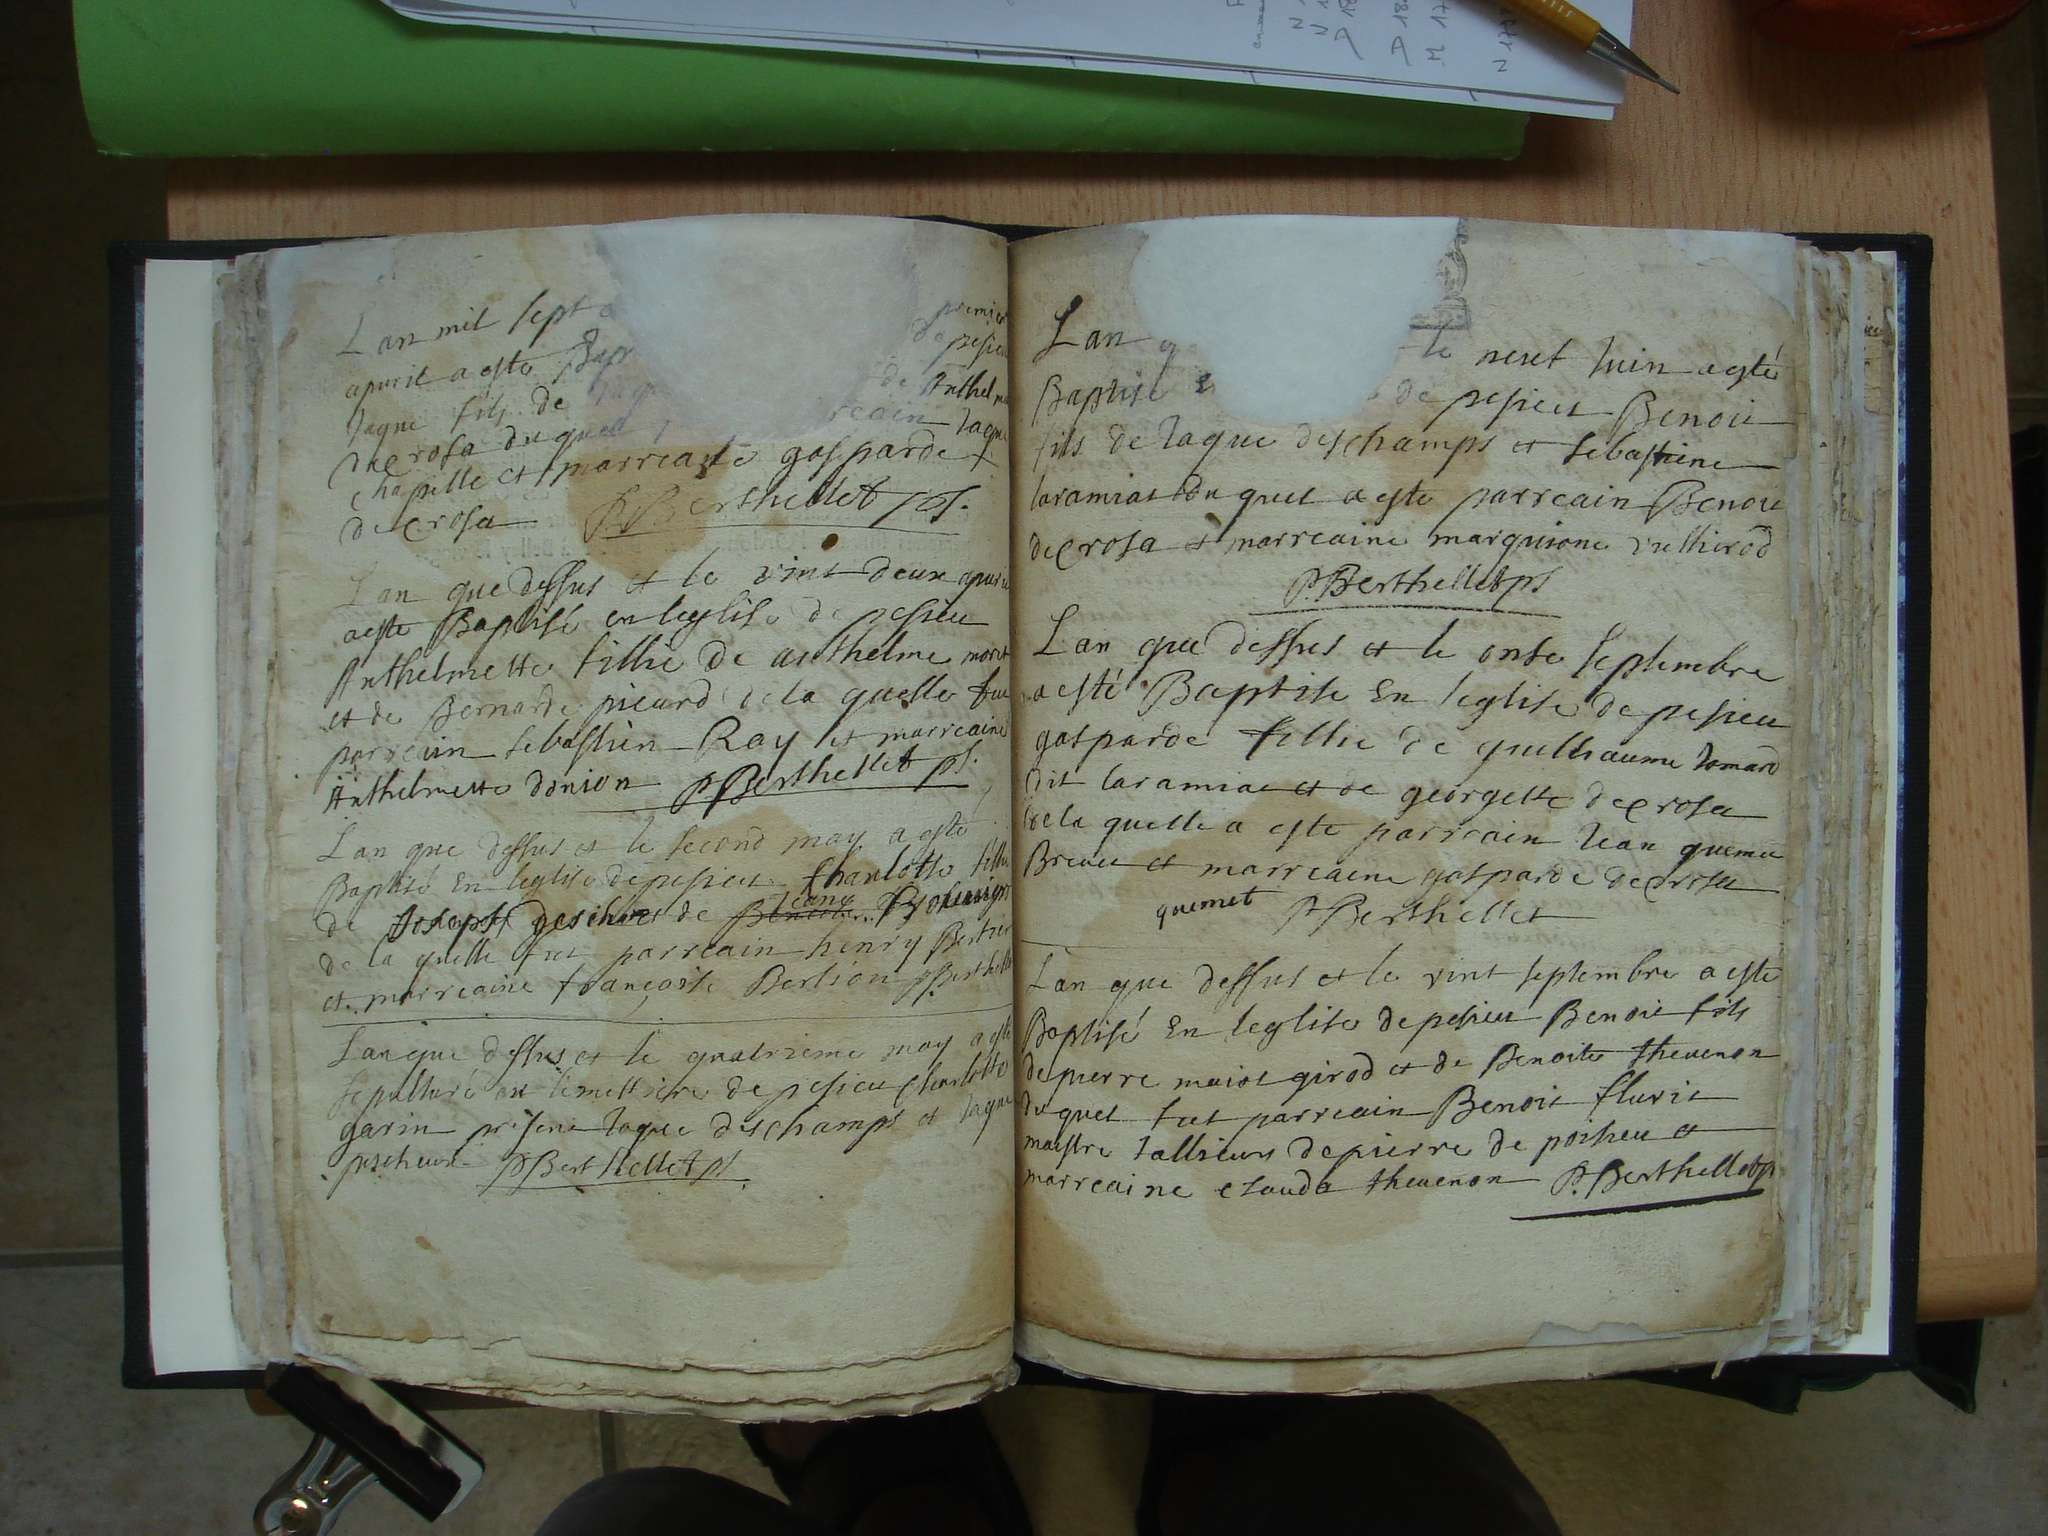 Lan mil sept
premier
apvril a este Bap
de pesieu
Jaque fils de Jaque
de Anthelme
decrosa du quel
reain Jaque
chapelle et marreaine gasparde
decrosa P Berthellet ps.
Lan que dessus et le vint deux apvril
a este Baptisé en leglise de pesieu
Anthelmette fillie de anthelme moret
et de Bernarde picard de la quelle fut
parreain sebastien Ray et marreaine
Anthelmette donion P Berthellet ps.
Lan que dessus et le second may a este
Baptisé En leglise de pesieu Charlotte fillie
de Joseph et de
de la quelle fut parreain henry Bertier
et marreaine françoise Berlion P Berthellet
Lan que dessus et le quatrieme may a este
sepulturé au simettiere de pesieu Charlotte
garin présent Jaque deschamps et Jaque
pescheur P Berthellet ps.
Lan q le neuf Juin a esté
Baptisé de pesieu Benoit
fils de Jaque deschamps et sebastiene
laramiat du quel a este parreain Benoit
decrosa et marreaine marguisone vullierod
P Berthellet ps
Lan que dessus et le onse septembre
a esté Baptisé En leglise de pesieu
gasparde fillie de guilliaume Jomard
dit laramiat et de georgette decrosa
de la quelle a este parreain Jean quemet
Brevet et marreaine gasparde decrosa
quemet P Berthellet
Lan que dessus et le vint septembre a este
Baptisé En leglise de pesieu Benoit fils
de pierre muiot girod et de Benoite thevenon
du quel fut parreain Benoit fluvit
maistre tallieur de pierre de poisieu et
marreaine clauda thevenon P. Berthellet ps